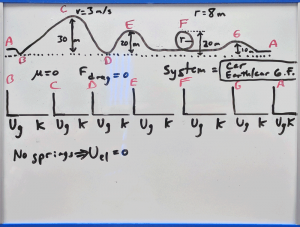 C v=3 m/s F r=8m
A 30 m E 20 m r 20m G 10 m A
B D
μ=0 F drag=0 System = Car Earth/car G.F.
B C D E F G A
Ug K Ug K Ug K Ug K Ug K Ug K Ug K
No springs ⇒ Uel = 0